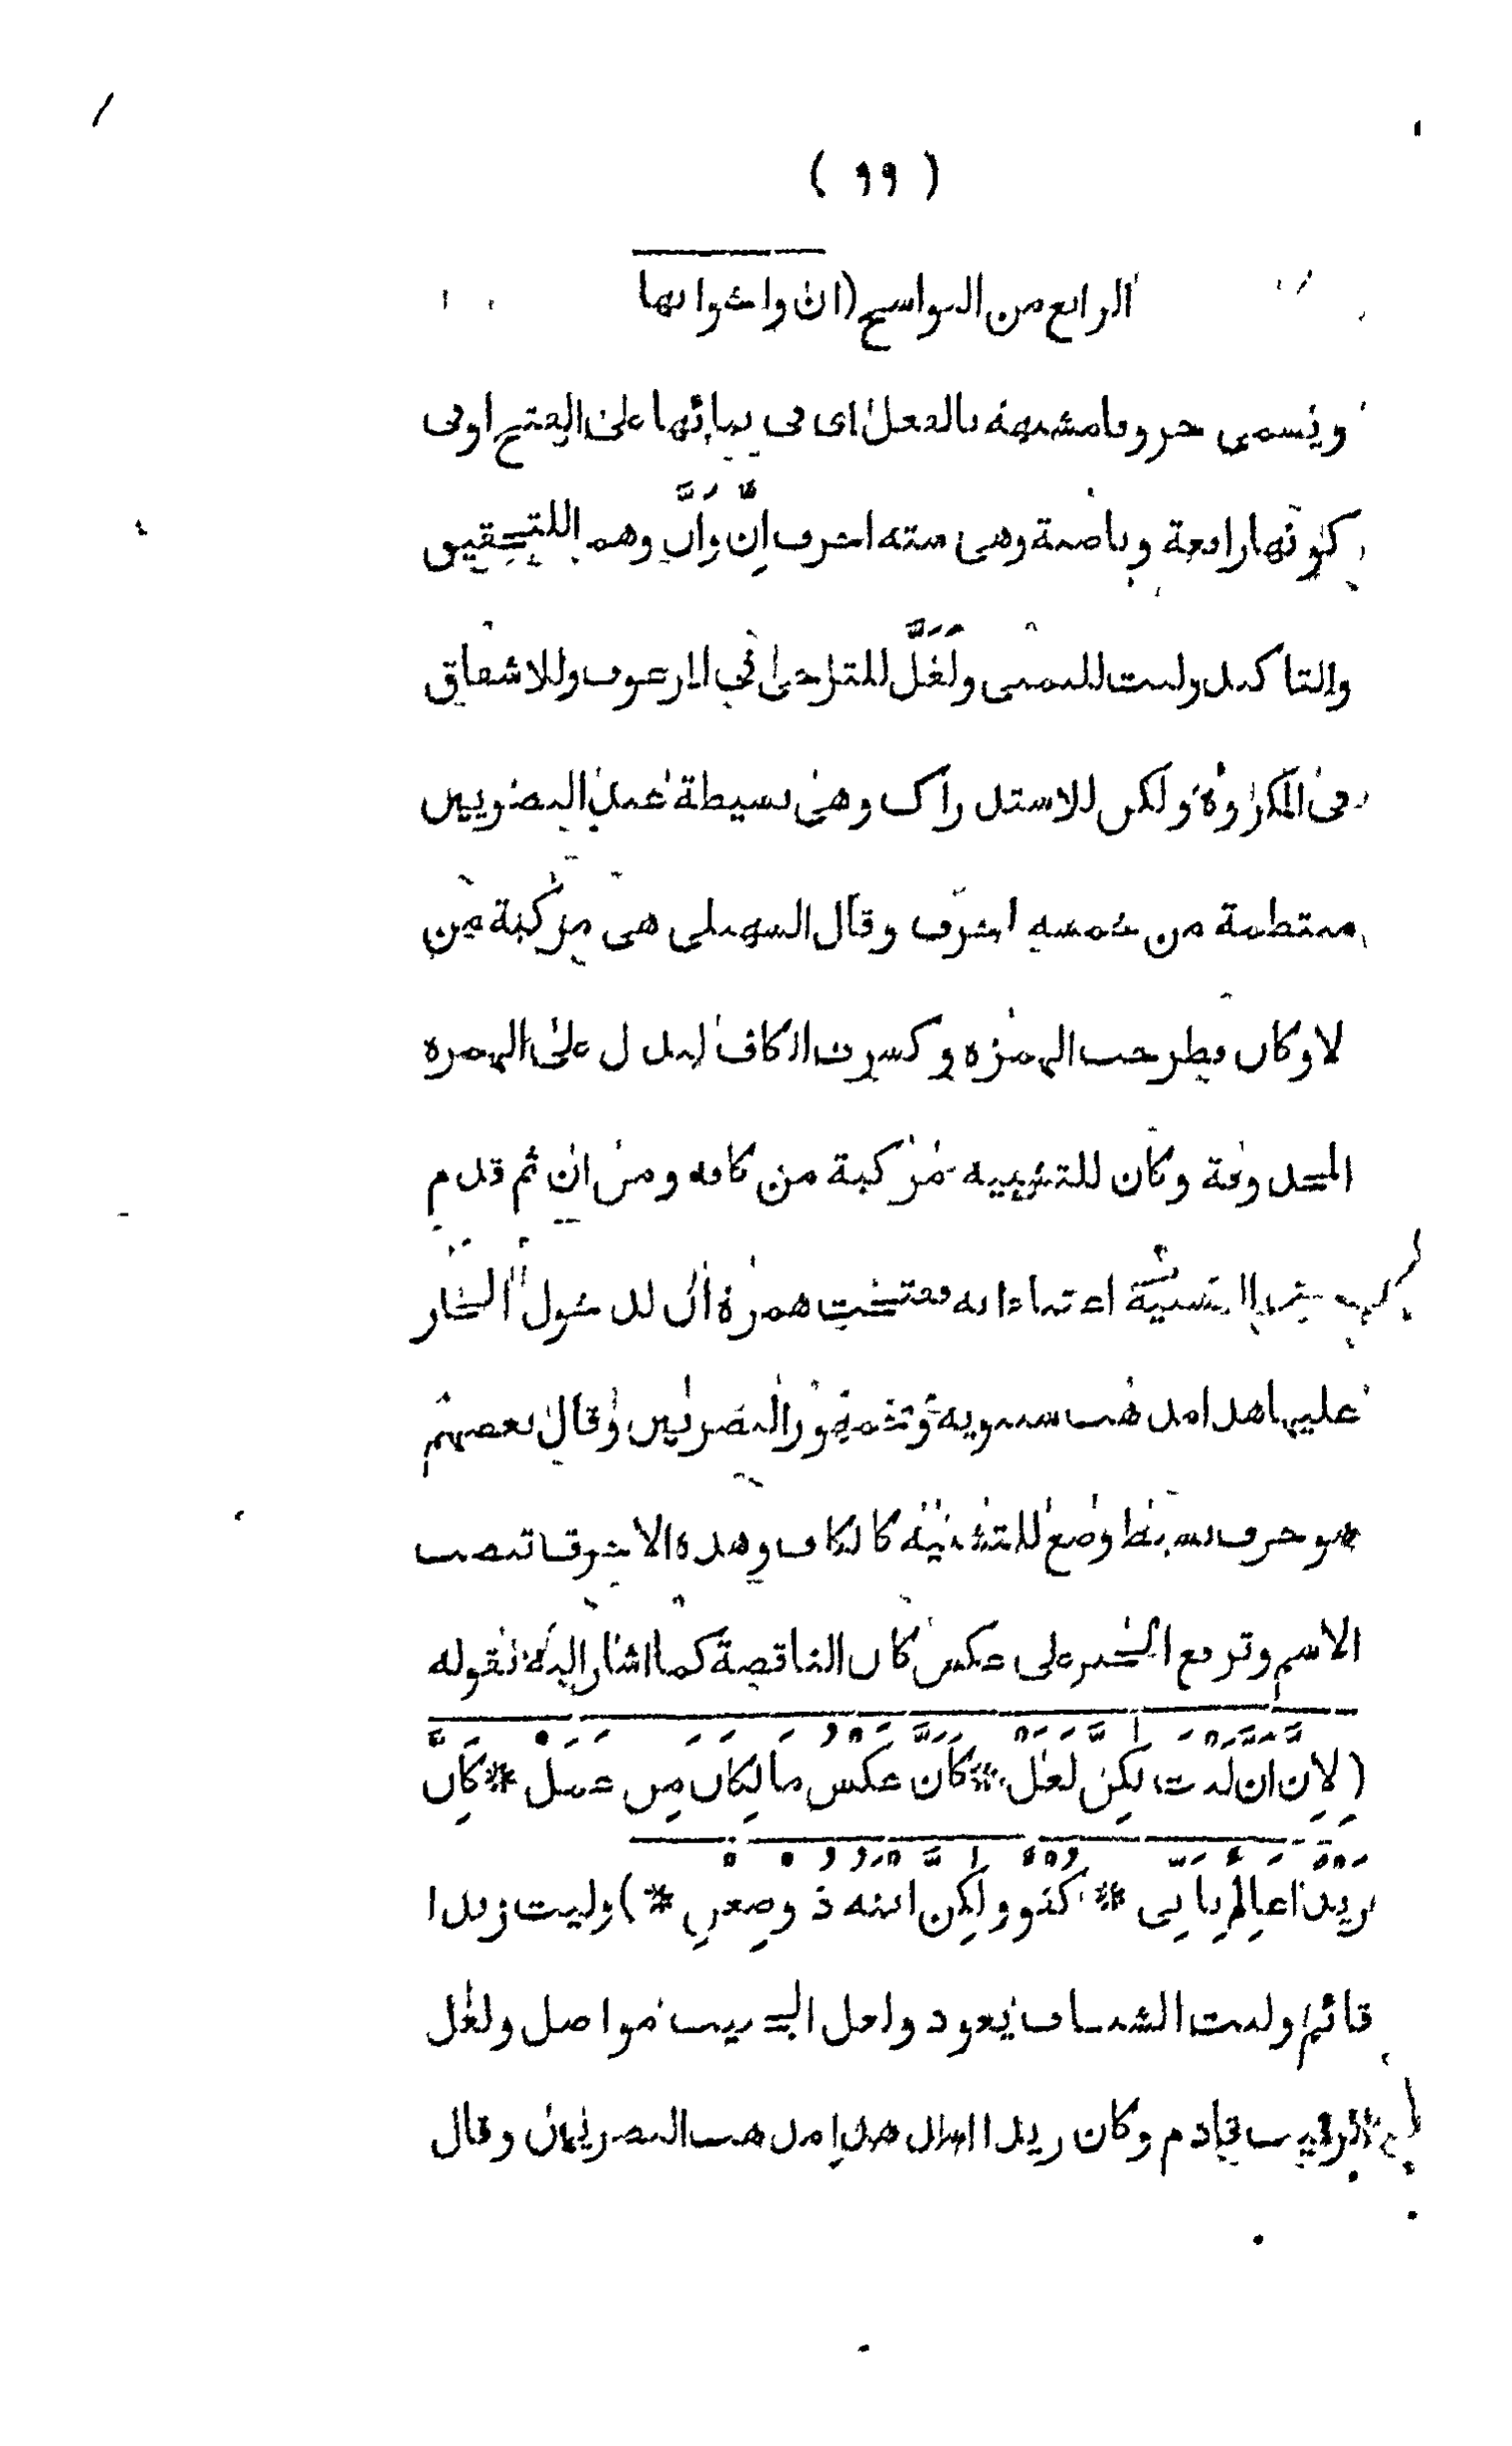 ( ٩٩ )
الرابع من النواسخ (ان واخواتها
وتسمى حروفا مشبهة بالفعل اى فى بنائها على الفتح اوفى
كونها رافعة وناصبة وهى ستة احرف اِنَّ وَاَنَّ وهما للتحقيق
والتاكيد وليت للتمنى ولَعَلَّ للترجى فى المرغوب وللاشفاق
فى المكروه ولكن للاستدراك وهى بسيطة عند البصريين
منتظمة من خمسة احرف وقال السهيلى هى مركبة من
لا وكان فطرحت الهمزة وكسرت الكاف لتدل على الهمزة
المحذوفة وكان للتشبيه مركبة من كافه ومن ان ثم قدم
التشبيه اعتناء به ففتحت همزة ان لدخول الجار
عليها هذا مذهب سيبويه وجمهور البصريين وقال بعضهم
هو حرف بسيط وضع للتشبيه كالكاف وهذه الاحرف تنصب
الاسم وترفع الخبر على عكس كان الناقصة كما اشار اليه بقوله
(لِاِنَّ اَنَّ لَيْتَ لٰكِنَّ لَعَلَّ * كَأَنَّ عَكْسُ مَا لِكَانَ مِنْ عَمَلْ * كَاِنَّ
زَيْدًا عَالِمٌ بِاَنِّى * كُفْوٌ وَلٰكِنَّ ابْنَهُ ذُو ضِغْنِ *) وليت زيدا
قائم وليت الشباب يعود ولعل الحبيب مواصل ولعل
الرقيب قادم وكان زيدا اسد هذا مذهب البصريين وقال